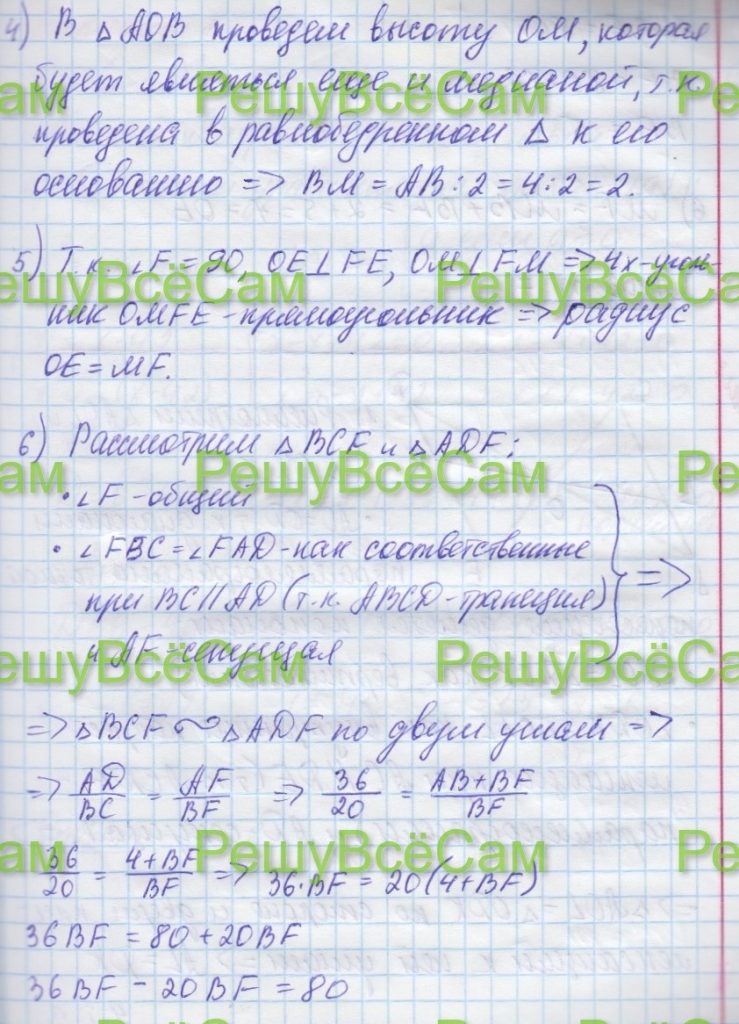 4) В △ AOB проведем высоту OM, которая
будет являться еще и медианой, т.к.
проведена в равнобедренном △ к его
основанию => BM = AB : 2 = 4 : 2 = 2.
5) Т.к. ∠F = 90, OE ⊥ FE, OM ⊥ FM => 4х-уголь-
ник OMFE - прямоугольник => радиус
OE = MF.
6) Рассмотрим △ BCF и △ ADF:
• ∠F - общий
• ∠FBC = ∠FAD - как соответственные
при BC || AD (т.к. ABCD - трапеция)
и AF - секущая
=>
=> △ BCF ~ △ ADF по двум углам =>
=> AD/BC = AF/BF => 36/20 = AB+BF/BF
36/20 = 4+BF/BF => 36·BF = 20(4+BF)
36BF = 80 + 20BF
36BF - 20BF = 80
РешуВсёСам